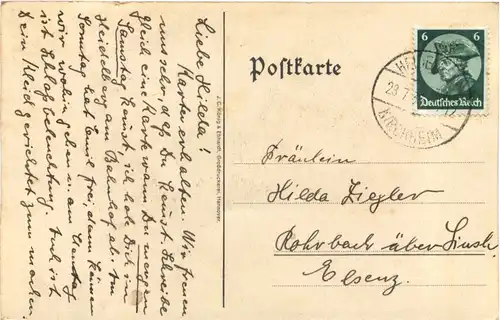 Liebe Hilda!
Karte erhalten. Wir freuen
uns sehr, daß Du kommst. Schreibe
gleich eine Karte wann Du morgen
Samstag kommst, ich hole Dich in
Heidelberg am Bahnhof ab. Am
Sonntag hat Emil frei, dann können
wir wohin gehen. am Samstag
ist Schloßbeleuchtung. Tante ist
Dein Kleid gerichtet zum machen.
J.C. König & Ebhardt, Großdruckerei, Hannover.
Postkarte
6 6
Deutsches Reich
23.7.
KIRCHHEIM
Fräulein
Hilda Ziegler
Rohrbach über Sinsh.
Elsenz.